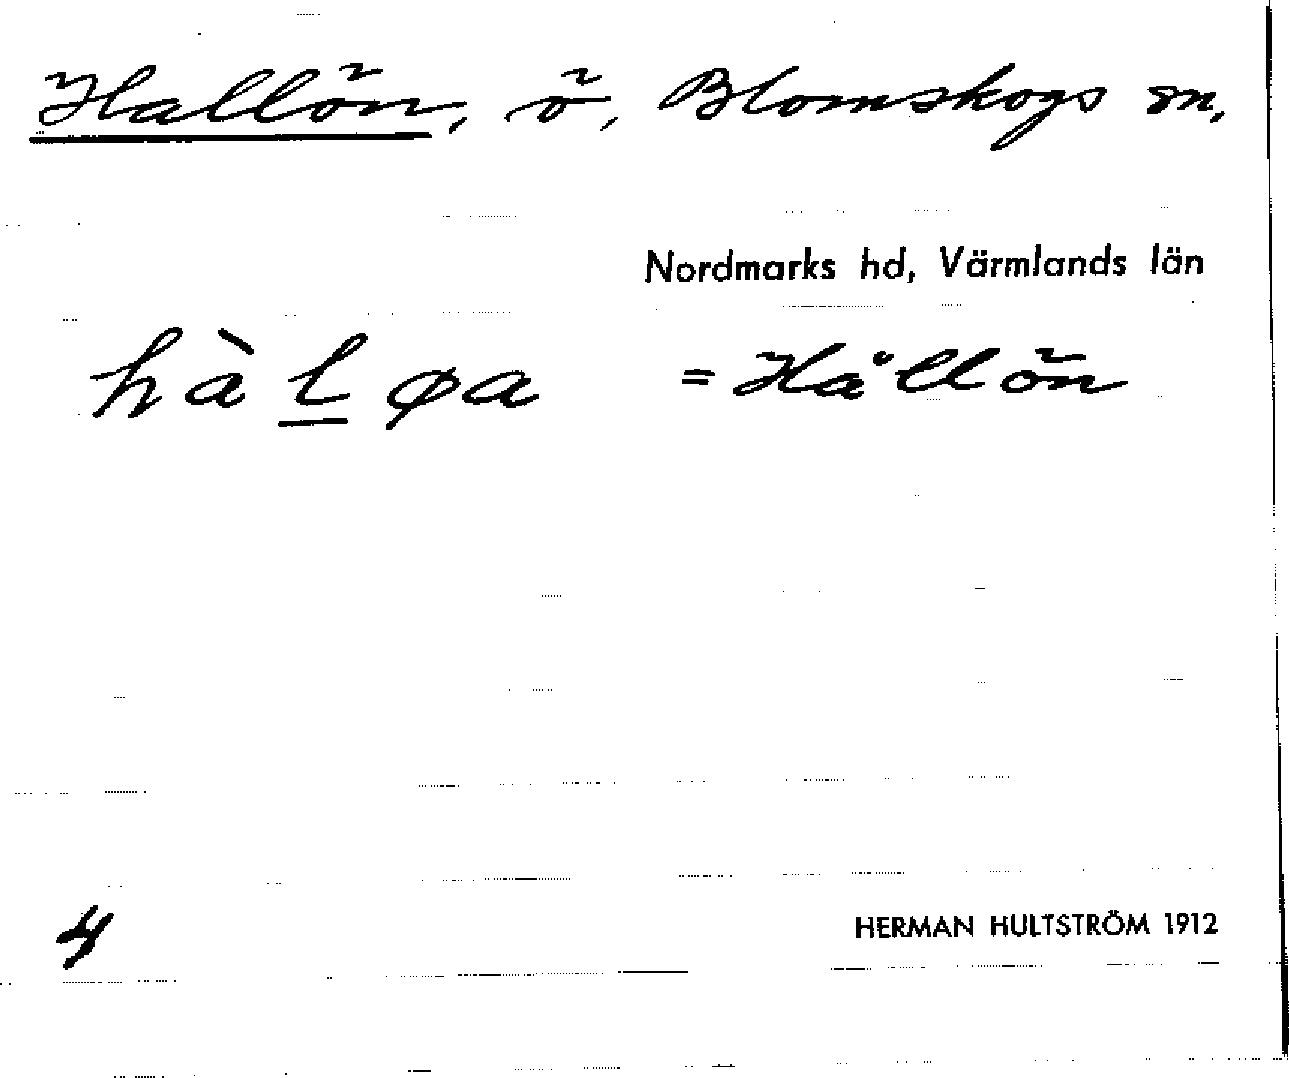 Hallön, ö, Blomskogs sn,
Nordmarks hd, Värmlands län
hàl̲øa = Hållön
4
HERMAN HULTSTRÖM 1912